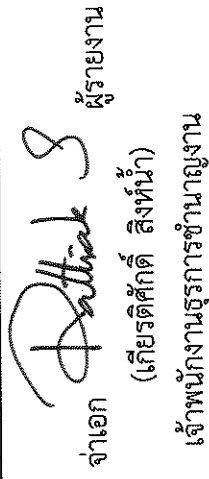 จ่าเอก ผู้รายงาน
(เกียรติศักดิ์ สิงห์น้ำ)
เจ้าพนักงานธุรการชำนาญงาน